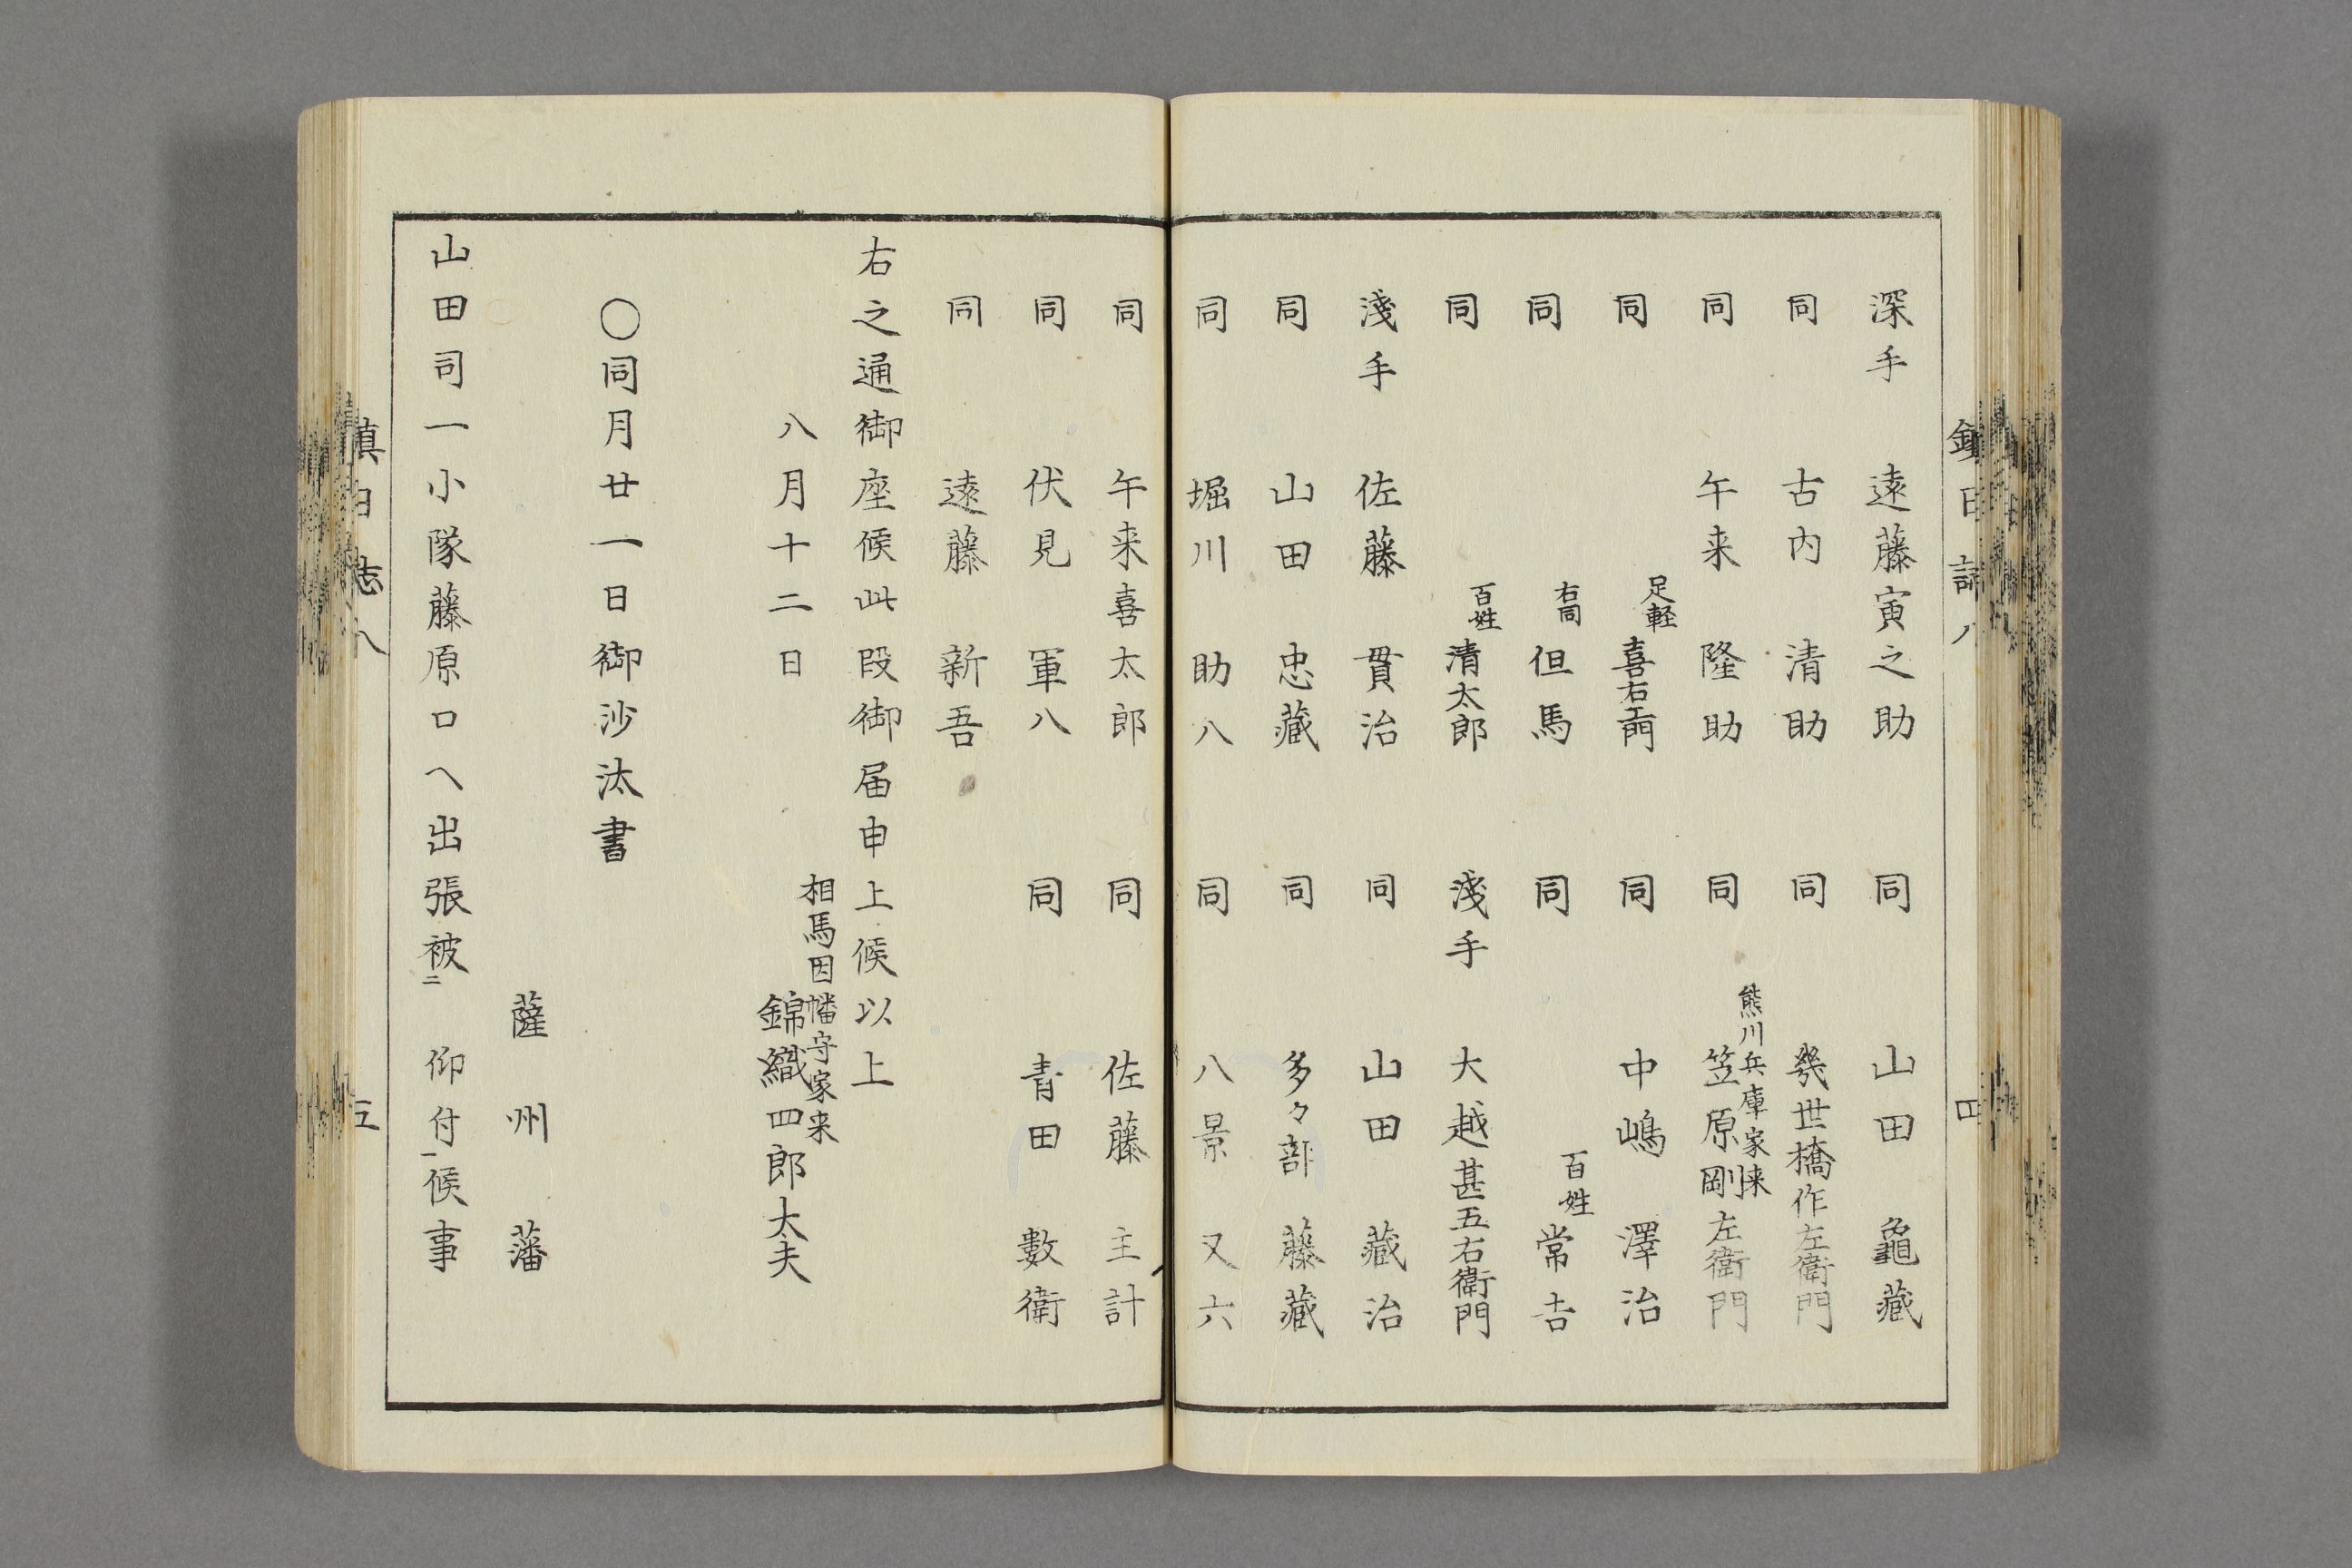 深手　遠藤寅之助　同　山田　龜藏
同　古内　清助　同　幾世橋作左衛門
同　午来　隆助　同　熊川兵庫家倈　笠原剛左衛門
同　足軽　喜右衛門　同　中嶋　澤治
同　右同　但馬　同　百姓　常吉
同　百姓　清太郎　淺手　大越甚五右衛門
淺手　佐藤　貫治　同　山田　藏治
同　山田　忠藏　同　多々部　藤藏
同　堀川　助八　同　八景　又六
同　午来喜太郎　同　佐藤　主計
同　伏見　軍八　同　青田　數衛
同　遠藤　新吾
右之通御座候此段御届申上候以上
八月十二日　相馬因幡守家来　錦織四郎太夫
〇同月廿一日御沙汰書
薩州藩
山田司一小隊藤原口ヘ出張被二　仰付一候事
鎮日誌八　四
鎮日誌八　五